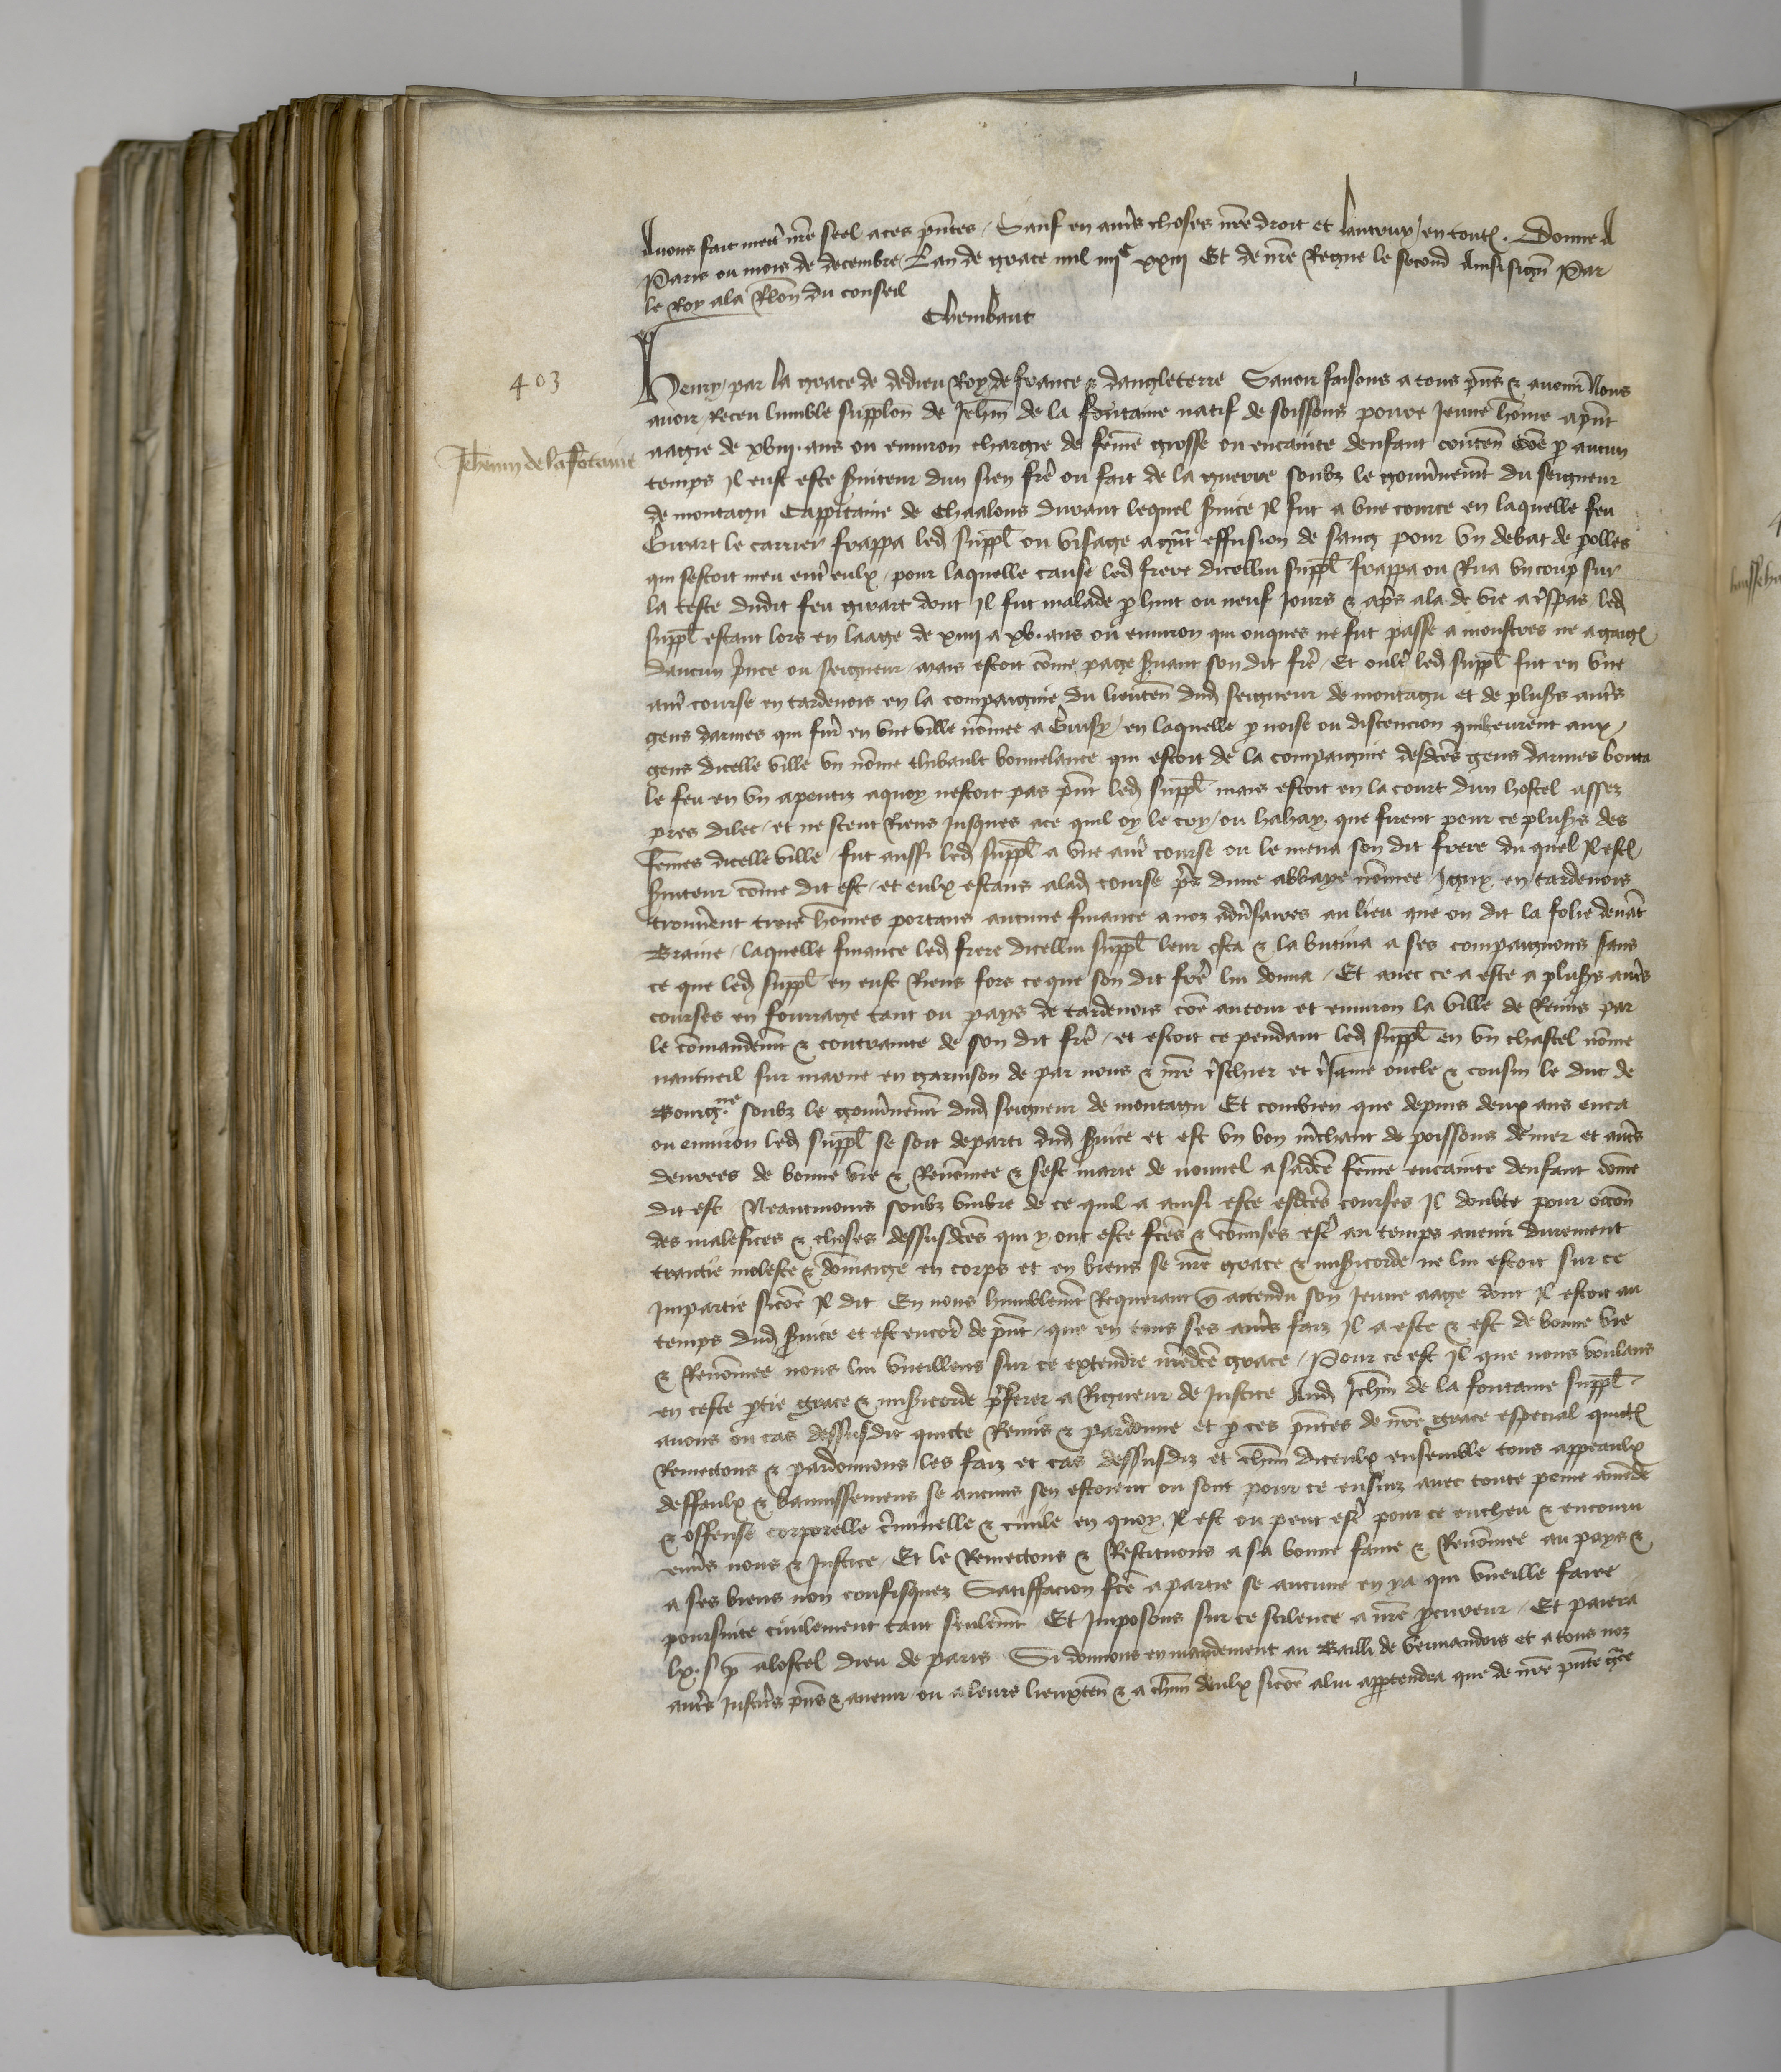 Avons fait mettre nre seel a ces pntes / Sauf en autres choses nre droit et lautruy / en toutes . Donne A
Paris ou mois de decembre / Lan de grace mil iiiic xxiii Et de nre Regne le second Ainsi signe Par
le Roy a la Rlon du conseil
Chembaut
403
Henry / par la grace de dedieu Roy de france & dangleterre Savoir faisons a tous pns & avenir Nous
avoir receu lumble supplon de Jehan de la fontaine natif de soissons povre Jeune home apnt
Jehenin de la fontaine
aagie de xviii ans ou environ chargie de feme grosse ou encainte denfant conten coe p aucun
temps Il eust este sviteur dun sien fre ou fait de la guerre soubz le gouvnemt du seigneur
de montagu Cappitaine de Chaalons durant lequel svice Il fut a une cource en laquelle feu
Girart le carrier frappa led suppl ou visage a gnt effusion de sang pour un debat de polles
qui sestoit meu entr eulx / pour laquelle cause led frere dicellui suppl frappa ou Rua un coup sur
la teste dudit feu girart dont Il fut malade p huit ou neuf Jours & aps ala de vie a tspas led
suppl estant lors en laage de xiiii a xv ans ou environ qui onques ne fut passe a monstres ne a gaiges
daucun pince ou seigneur / mais estoit come page svant son dit fre / Et oultre led suppl fut en une
autr course en tardenois en la compaignie du lieuten dud seigneur de montagu et de pluss autres
gens darmes qui furent en une ville nomee a Crusy / en laquelle p noise ou discencion quilz eurent aux
gens dicelle ville un nome thibault bonnelance qui estoit de la compaignie desdces gens darmes bouta
le feu en un apentiz a quoy nestoit pas pnt led suppl mais estoit en la court dun hostel assez
pres dilec / et ne sceut Riens Jusques a ce quil oy le cry / ou hahay que firent pour ce pluss des
femes dicelle ville / fut aussi led suppl a une autr course ou le mena son dit frere du quel Il est
sviteur come dit est / et eulx estans a lad course pres dune abbaye nomee Igny en tardenois
trouverent trois homes portans aucune finance a noz advsaires au lieu que on dit la folie devant
Braine / laquelle finance led frere dicellui suppl leur osta & la butina a ses compaignons sans
ce que led suppl en eust Riens fors ce que son dit fre lui donna / Et avec ce a este a pluss autres
courses en fourrage tant ou pays de tardenois coe autour et environ la ville de Reims par
le comandemt & contrainte de son dit fre / et estoit ce pendant led suppl en un chastel nome
nantueil sur marne en garnison de par nous & nre tschier et tsame oncle & cousin le duc de
Bourgne soubz le gouvnemt dud seigneur de montagu Et combien que depuis deux ans enca
ou environ led suppl se soit departi dud svice et est un bon mchant de poissons de mer et autres
denrees de bonne vie & Renomee & sest marie de nouvel a sadce feme encainte denfant come
dit est Neantmoins soubz umbre de ce quil a ainsi este esdces courses Il doubte pour occon
des malefices & choses dessusdces qui y ont este fces & comises estr au temps avenir durement
traictie moleste & domaige en corps et en biens se nre grace & misicorde ne lui estoit sur ce
Impartie sicoe Il dit En nous humblemt Requerant q attendu son Jeune aage dont Il estoit au
temps dud svice et est encor de pnt / que en tous ses autres faiz Il a este & est de bonne vie
& Renomee nous lui vueillons sur ce extendre nredce grace / Pour ce est Il que nous voulans
en ceste ptie grace & misicorde pferer a Rigueur de Justice Aud Jehan de la fontaine suppl
avons ou cas dessusdit quicte Remis & pardonne et p ces pntes de nre grace especial quictes
Remectons & pardonnons les faiz et cas dessusdiz et chun diceulx ensemble tous appeaulx
deffaulx & bannissemens se aucuns sen estoient ou sont pour ce ensuiz avec toute peine amende
& offense corporelle cminelle & civile en quoy Il est ou peut estr pour ce encheu & encouru
envs nous & Justice / Et le Remectons & Restituons a sa bonne fame & Renomee au pays &
a ses biens non confisquez Satiffacion fce a partie se aucune en y a qui vueille faire
poursuite civilement tant seulemt Et Imposons sur ce scilence a nre pcureur / Et paiera
lx s p a lostel dieu de paris Si donnons en mandement au Bailli de Vermandois et a tous noz
autres Justiciers pns & avenir ou a leurs lieuxten & a chun deulx sicoe a lui apptendra que de nre pnte gce